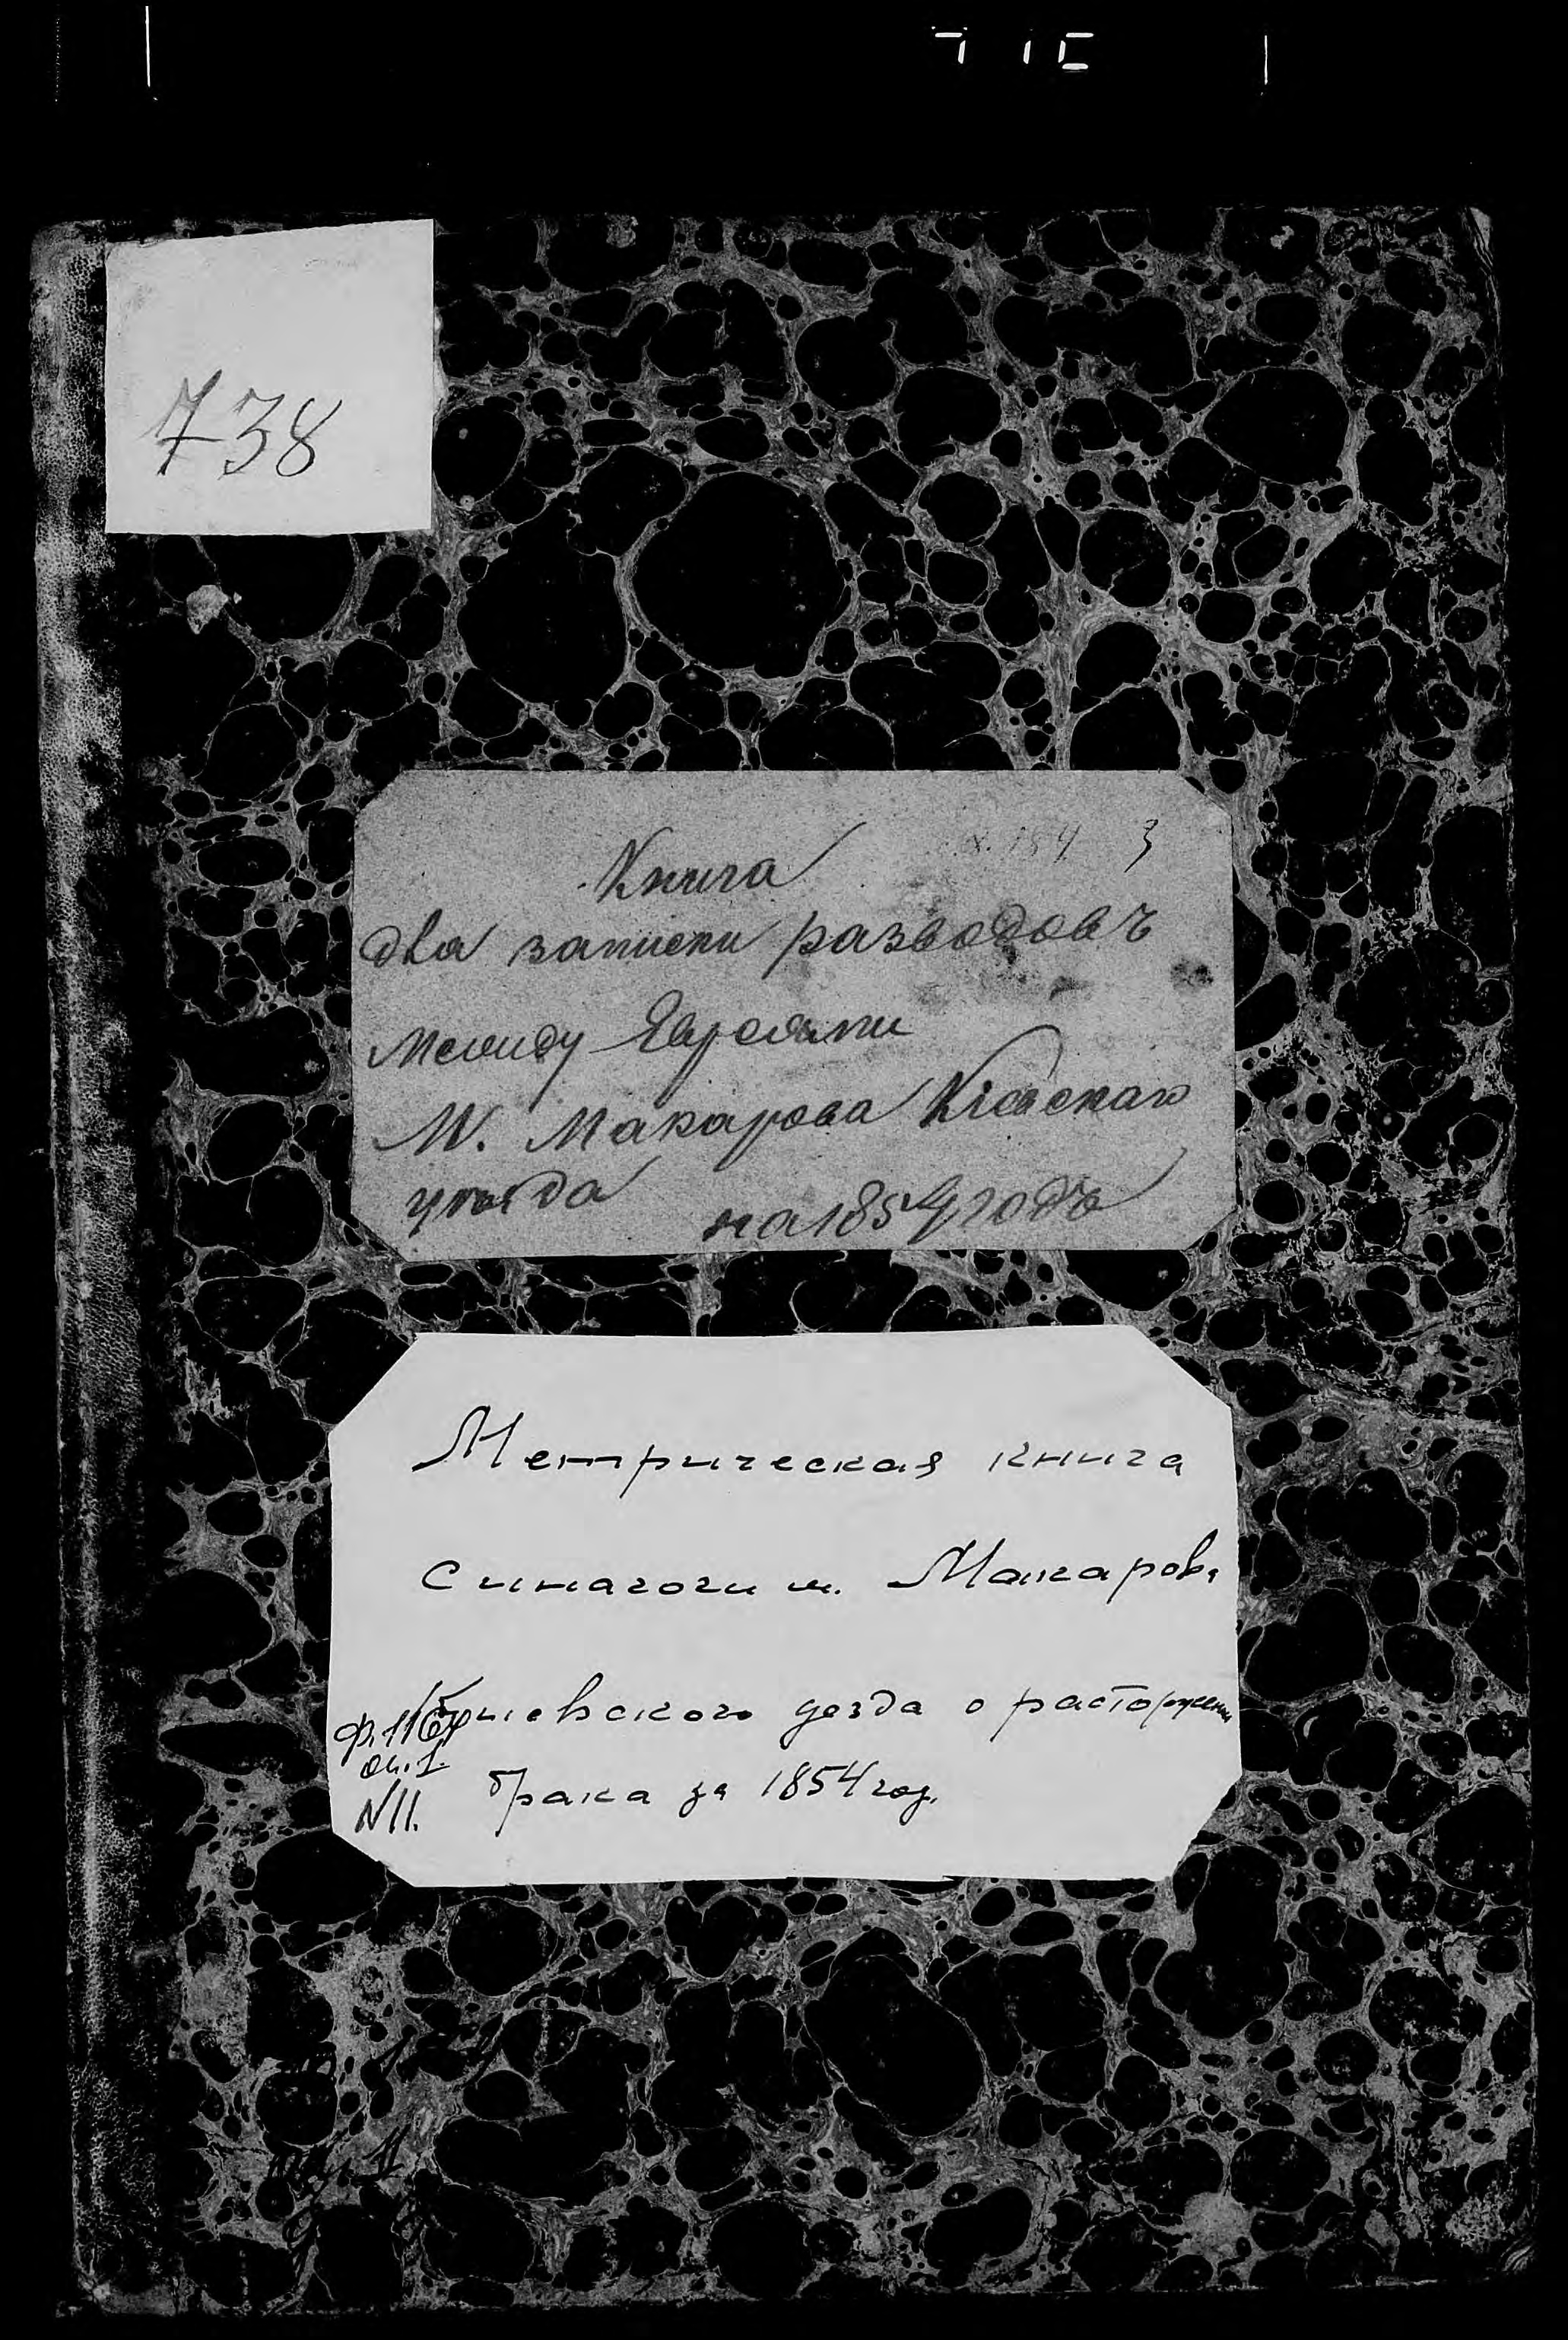 738
Книга
для записки разводовъ
между Евреями
М. Макарова Кіевскаго
уѣзда на 1854 годъ
Метрическая книга
синагоги м. Макарова
Киевского уезда о расторжении
брака за 1854 год.
оп. 1.
N 11.